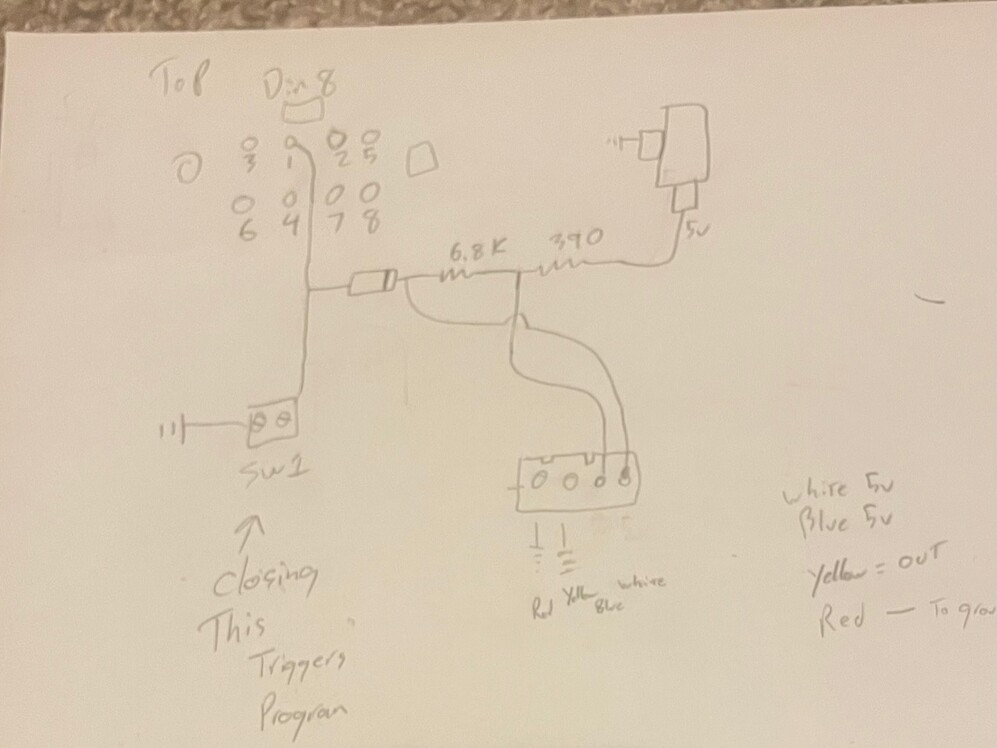 Top Din 8
3 1 2 5
6 4 7 8
5v
6.8K 390
SW1
Closing
This
Triggers
Progran
Red Yellow Blue white
white 5v
Blue 5v
Yellow = OUT
Red — To grou